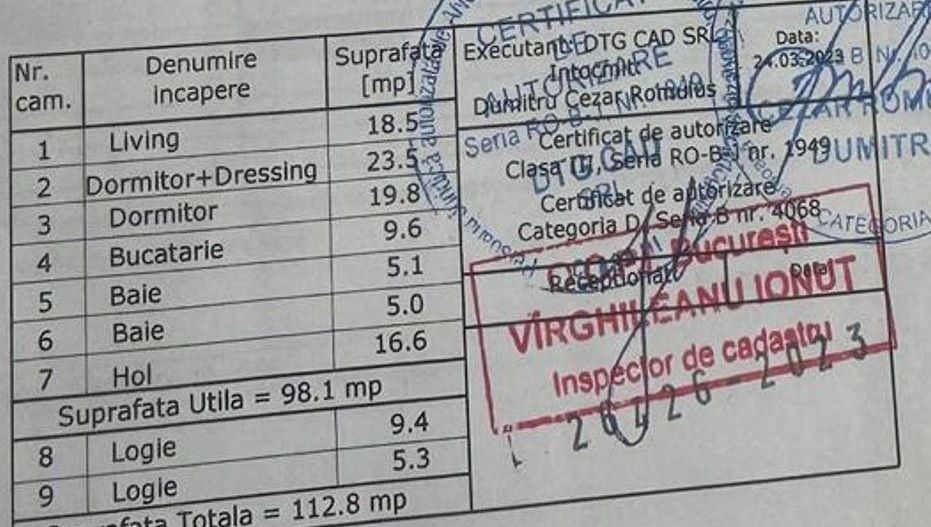 Nr. cam. Denumire incapere Suprafata [mp]
1 Living 18.5
2 Dormitor+Dressing 23.5
3 Dormitor 19.8
4 Bucatarie 9.6
5 Baie 5.1
6 Baie 5.0
7 Hol 16.6
Suprafata Utila = 98.1 mp
8 Logie 9.4
9 Logie 5.3
Totala = 112.8 mp
Executant: DTG CAD SRL
Intocmit
Dumitru Cezar Romulus
Certificat de autorizare
Clasa III, Seria RO-B-J nr. 1949
Certificat de autorizare
Categoria D, Seria B nr. 4068
Receptionat
Data:
24.03.2023
Data
CERTIFICAT
DE
AUTORIZARE
Seria RO-B-J
DTG CAD
SRL
CEZAR
DUMITR
CATEGORIA
București
VÎRGHILEANU IONUT
Inspector de cadastru
2023